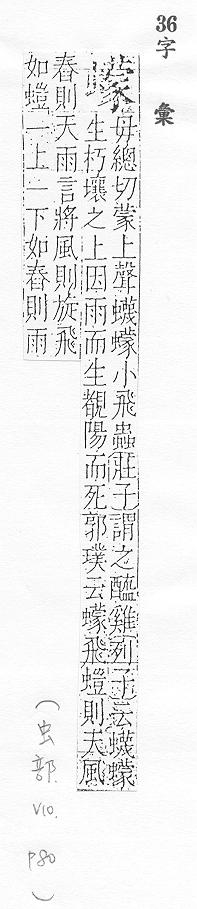 36 字彙
蠓
毋總切蒙上聲蠛蠓小飛蟲莊子謂之醯雞列子云蠛蠓
生朽壤之上因雨而生覩陽而死郭璞云蠓飛磑則天風
舂則天雨言將風則旋飛
如磑一上一下如舂則雨
(虫部. V10. P80)